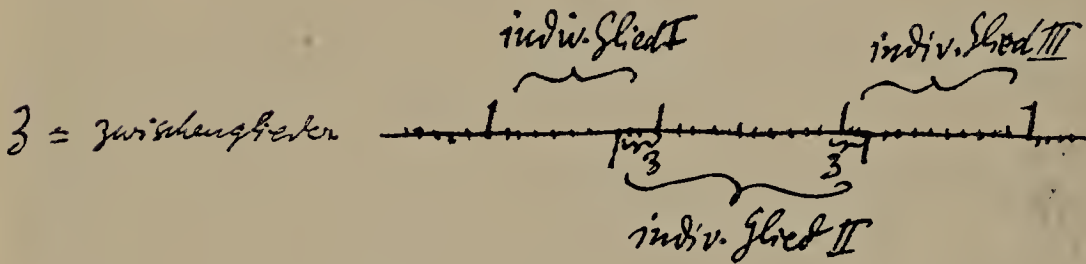 indiv. Glied I
indiv. Glied III
z = zwischenglieder
z z
indiv. Glied II